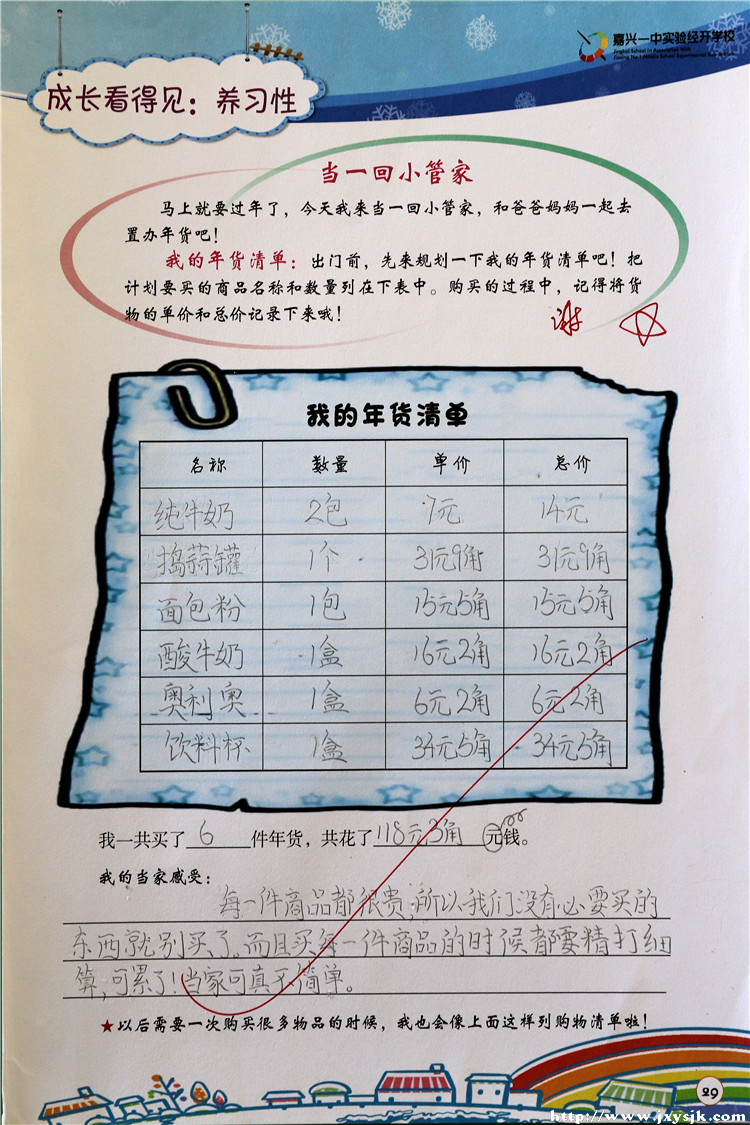 嘉兴一中实验经开学校
成长看得见：养习性
当一回小管家
马上就要过年了，今天我来当一回小管家，和爸爸妈妈一起去
置办年货吧！
我的年货清单：出门前，先来规划一下我的年货清单吧！把
计划要买的商品名称和数量列在下表中。购买的过程中，记得将货
物的单价和总价记录下来哦！
谢
我的年货清单
名称 数量 单价 总价
纯牛奶 2包 7元 14元
捣蒜罐 1个 31元9角 31元9角
面包粉 1包 15元5角 15元5角
酸牛奶 1盒 16元2角 16元2角
奥利奥 1盒 6元2角 6元2角
饮料杯 1盒 34元5角 34元5角
我一共买了6件年货，共花了118元3角元钱。
我的当家感受：
每一件商品都很贵，所以我们没有必要买的
东西就别买了。而且买每一件商品的时候都要精打细
算，可累了！当家可真不简单。
★以后需要一次购买很多物品的时候，我也会像上面这样列购物清单啦！
29
http://www.jxysjk.com